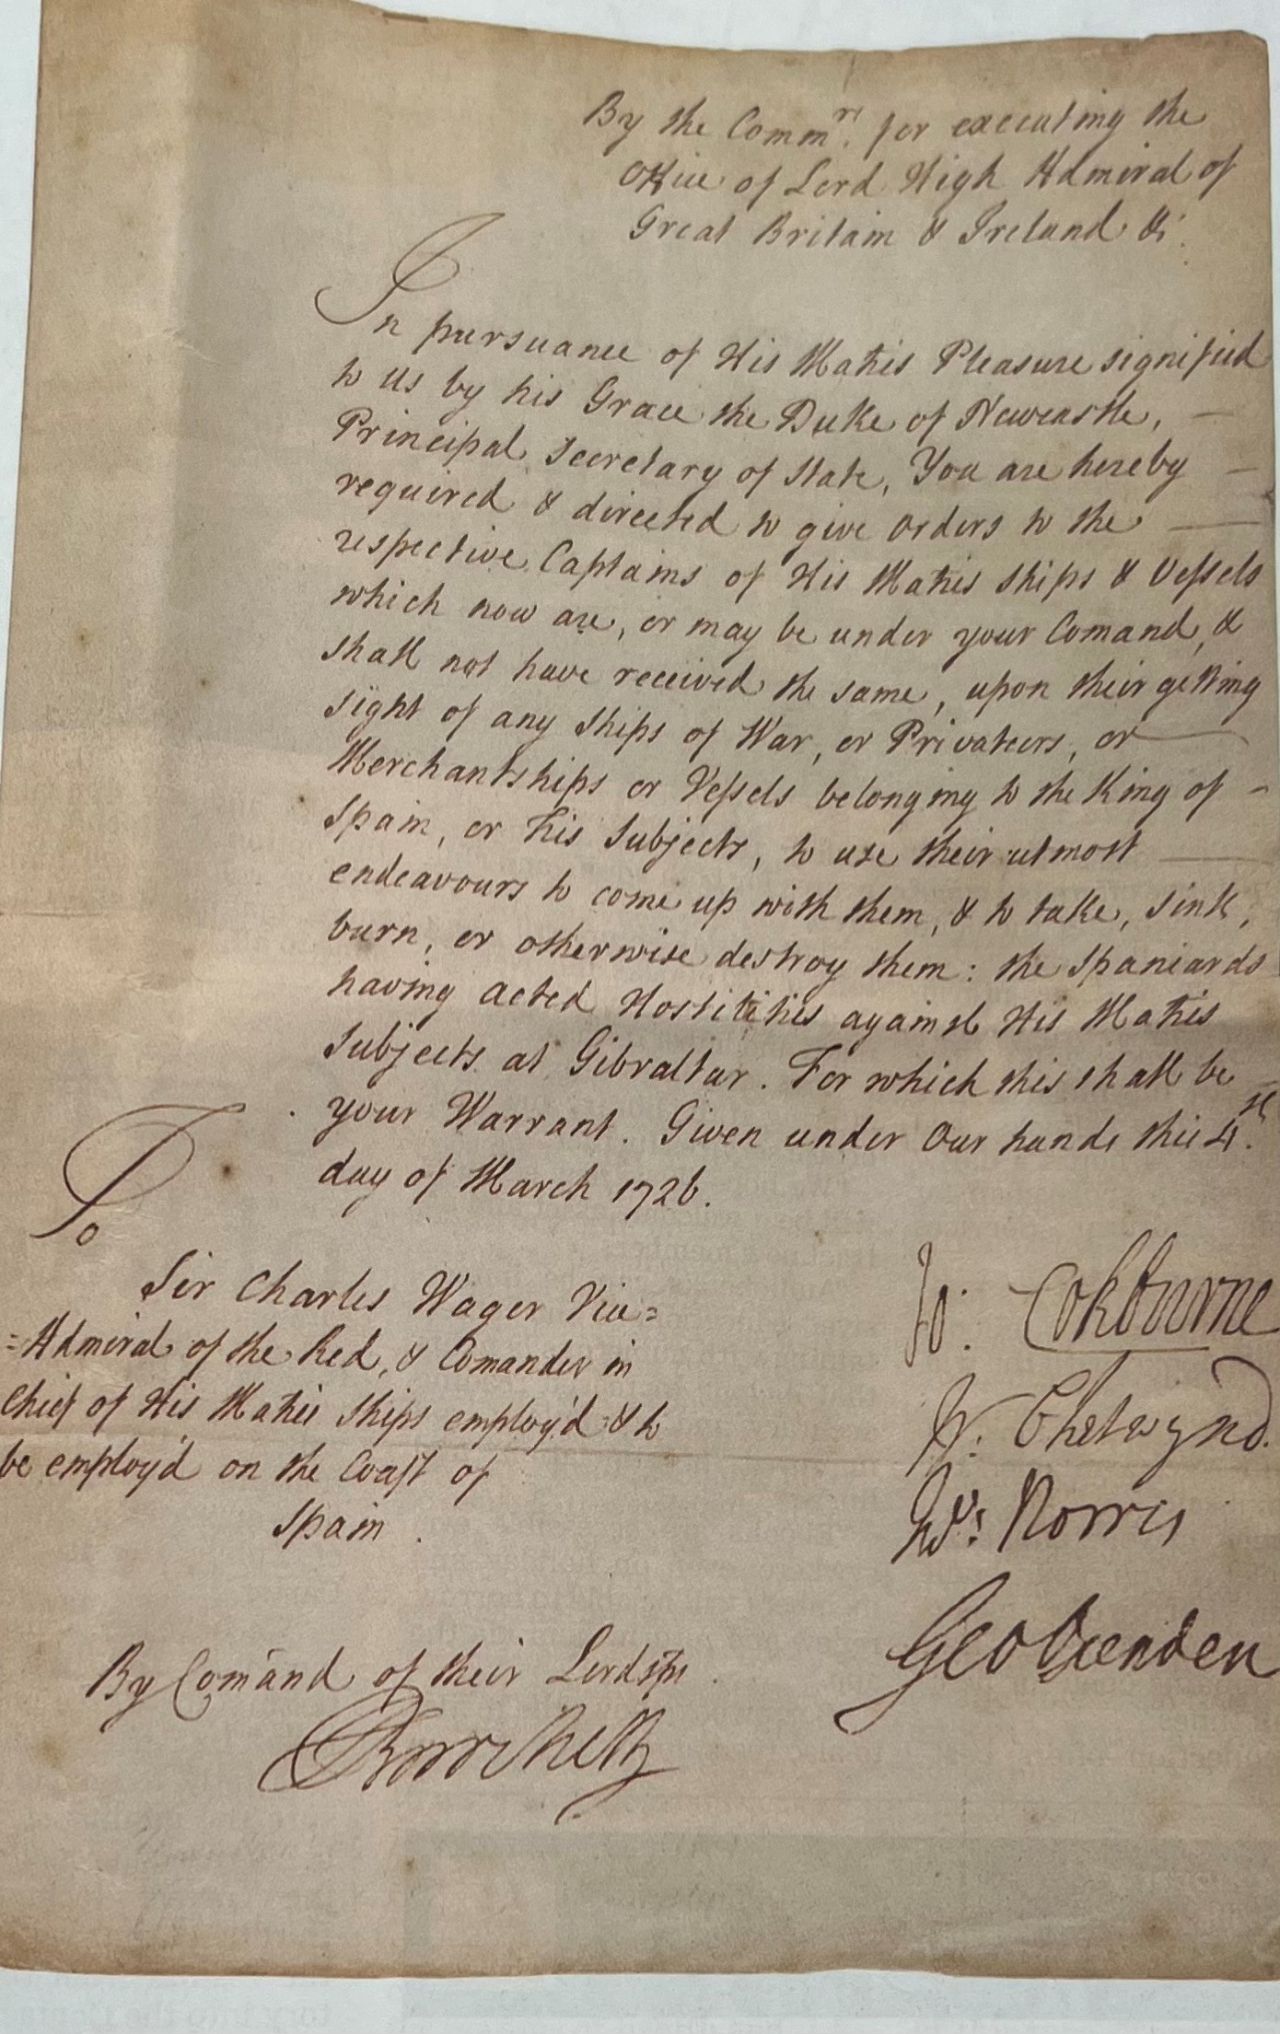 By the Comm.rs for executing the
Office of Lord High Admiral of
Great Britain & Ireland &c.
In pursuance of His Mat:ies Pleasure signified
to Us by his Grace the Duke of Newcastle,
Principal Secretary of State, You are hereby
required & directed to give Orders to the
respective Captains of His Mat:ies Ships & Vessels
which now are, or may be under your Comand, &
shall not have received the same, upon their getting
sight of any Ships of War, or Privateers, or
Merchantships or Vessels belonging to the King of
Spain, or his Subjects, to use their utmost
endeavours to come up with them, & to take, sink,
burn, or otherwise destroy them: the Spaniards
having acted Hostilities against His Mat:ies
Subjects at Gibraltar. For which this shall be
your Warrant. Given under Our hands this 4.th
day of March 1726.
To
Sir Charles Wager Vice=
=Admiral of the Red, & Comander in
Chief of His Mat:ies Ships employ'd & to
be employ'd on the Coast of
Spain.
Jo: Cokburne
W: Chetwynd.
Jn.o Norris
Geo Oxenden
By Comand of their Lordsps
J Burchett